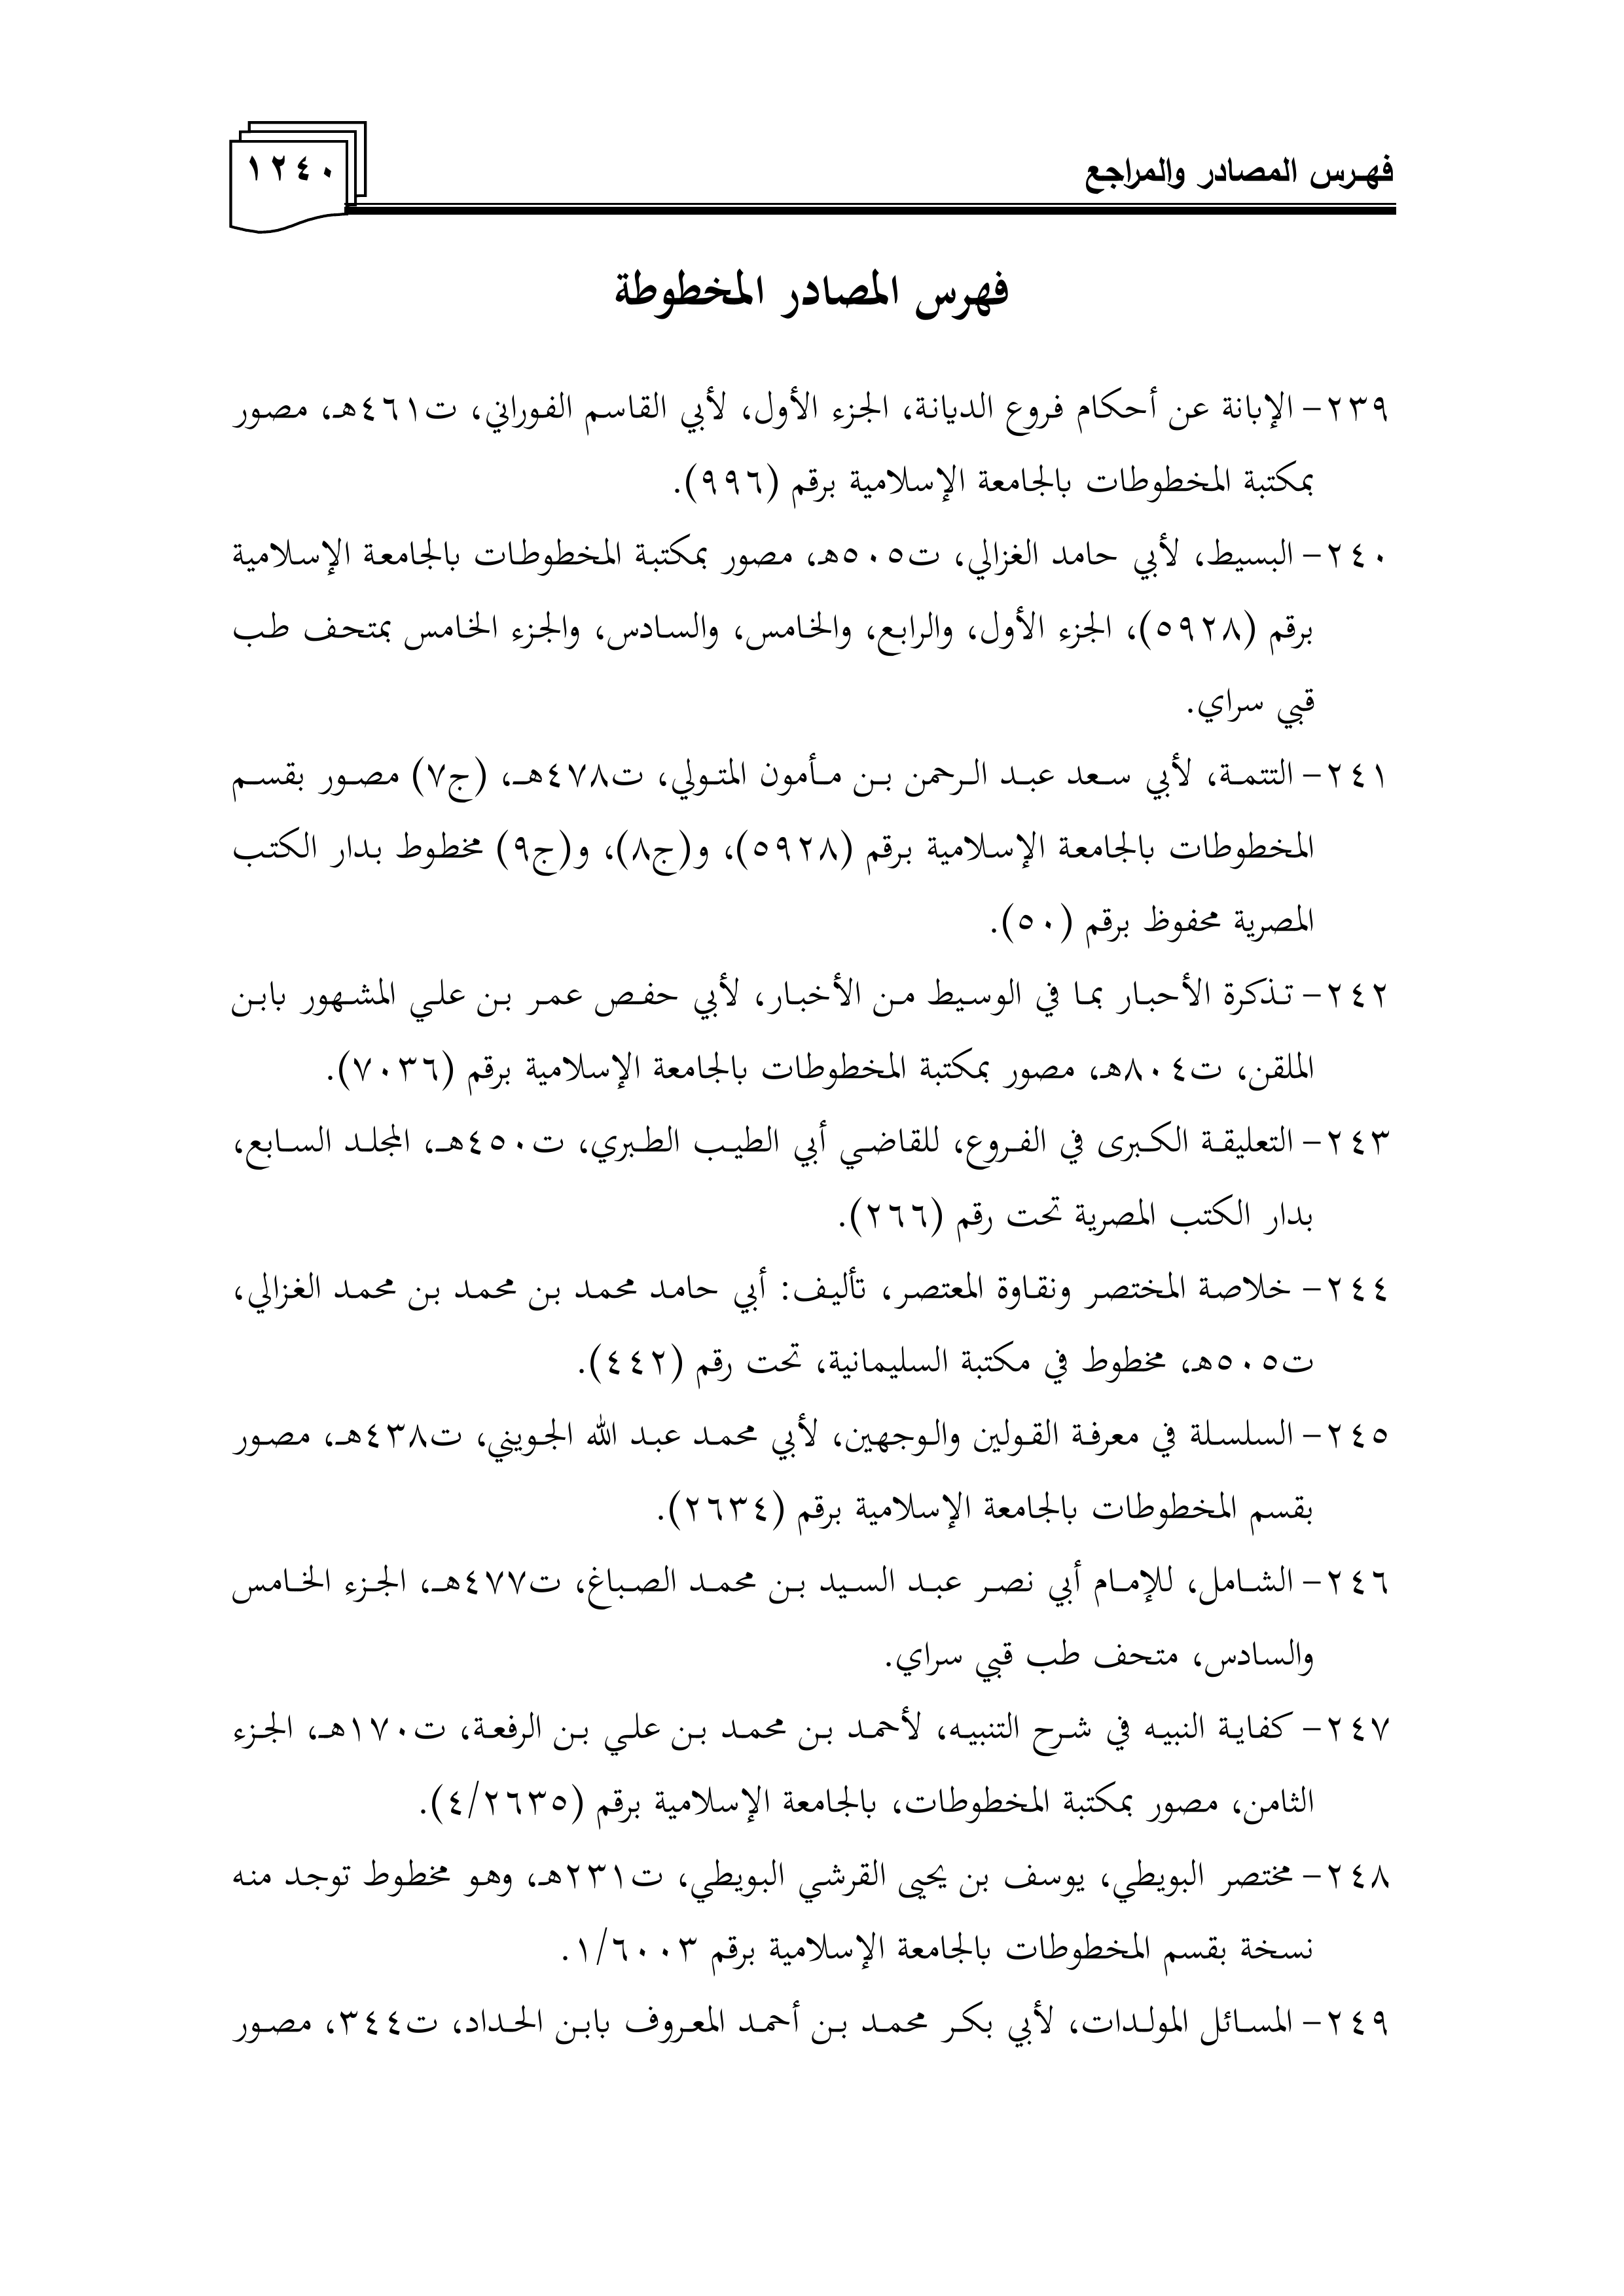 فهرس المصادر والمراجع
١٢٤٠
فهرس المصادر المخطوطة
٢٣٩- الإبانة عن أحكام فروع الديانة، الجزء الأول، لأبي القاسم الفوراني، ت٤٦١هـ، مصور
بمكتبة المخطوطات بالجامعة الإسلامية برقم (٩٩٦).
٢٤٠- البسيط، لأبي حامد الغزالي، ت٥٠٥هـ، مصور بمكتبة المخطوطات بالجامعة الإسلامية
برقم (٥٩٢٨)، الجزء الأول، والرابع، والخامس، والسادس، والجزء الخامس بمتحف طب
قبي سراي.
٢٤١- التتمة، لأبي سعد عبد الرحمن بن مأمون المتولي، ت٤٧٨هـ، (ج٧) مصور بقسم
المخطوطات بالجامعة الإسلامية برقم (٥٩٢٨)، و(ج٨)، و(ج٩) مخطوط بدار الكتب
المصرية محفوظ برقم (٥٠).
٢٤٢- تذكرة الأحبار بما في الوسيط من الأخبار، لأبي حفص عمر بن علي المشهور بابن
الملقن، ت٨٠٤هـ، مصور بمكتبة المخطوطات بالجامعة الإسلامية برقم (٧٠٣٦).
٢٤٣- التعليقة الكبرى في الفروع، للقاضي أبي الطيب الطبري، ت٤٥٠هـ، المجلد السابع،
بدار الكتب المصرية تحت رقم (٢٦٦).
٢٤٤- خلاصة المختصر ونقاوة المعتصر، تأليف: أبي حامد محمد بن محمد بن محمد الغزالي،
ت٥٠٥هـ، مخطوط في مكتبة السليمانية، تحت رقم (٤٤٢).
٢٤٥- السلسلة في معرفة القولين والوجهين، لأبي محمد عبد الله الجويني، ت٤٣٨هـ، مصور
بقسم المخطوطات بالجامعة الإسلامية برقم (٢٦٣٤).
٢٤٦- الشامل، للإمام أبي نصر عبد السيد بن محمد الصباغ، ت٤٧٧هـ، الجزء الخامس
والسادس، متحف طب قبي سراي.
٢٤٧- كفاية النبيه في شرح التنبيه، لأحمد بن محمد بن علي بن الرفعة، ت١٧٠هـ، الجزء
الثامن، مصور بمكتبة المخطوطات، بالجامعة الإسلامية برقم (٤/٢٦٣٥).
٢٤٨- مختصر البويطي، يوسف بن يحيى القرشي البويطي، ت٢٣١هـ، وهو مخطوط توجد منه
نسخة بقسم المخطوطات بالجامعة الإسلامية برقم ١/٦٠٠٣.
٢٤٩- المسائل المولدات، لأبي بكر محمد بن أحمد المعروف بابن الحداد، ت٣٤٤، مصور